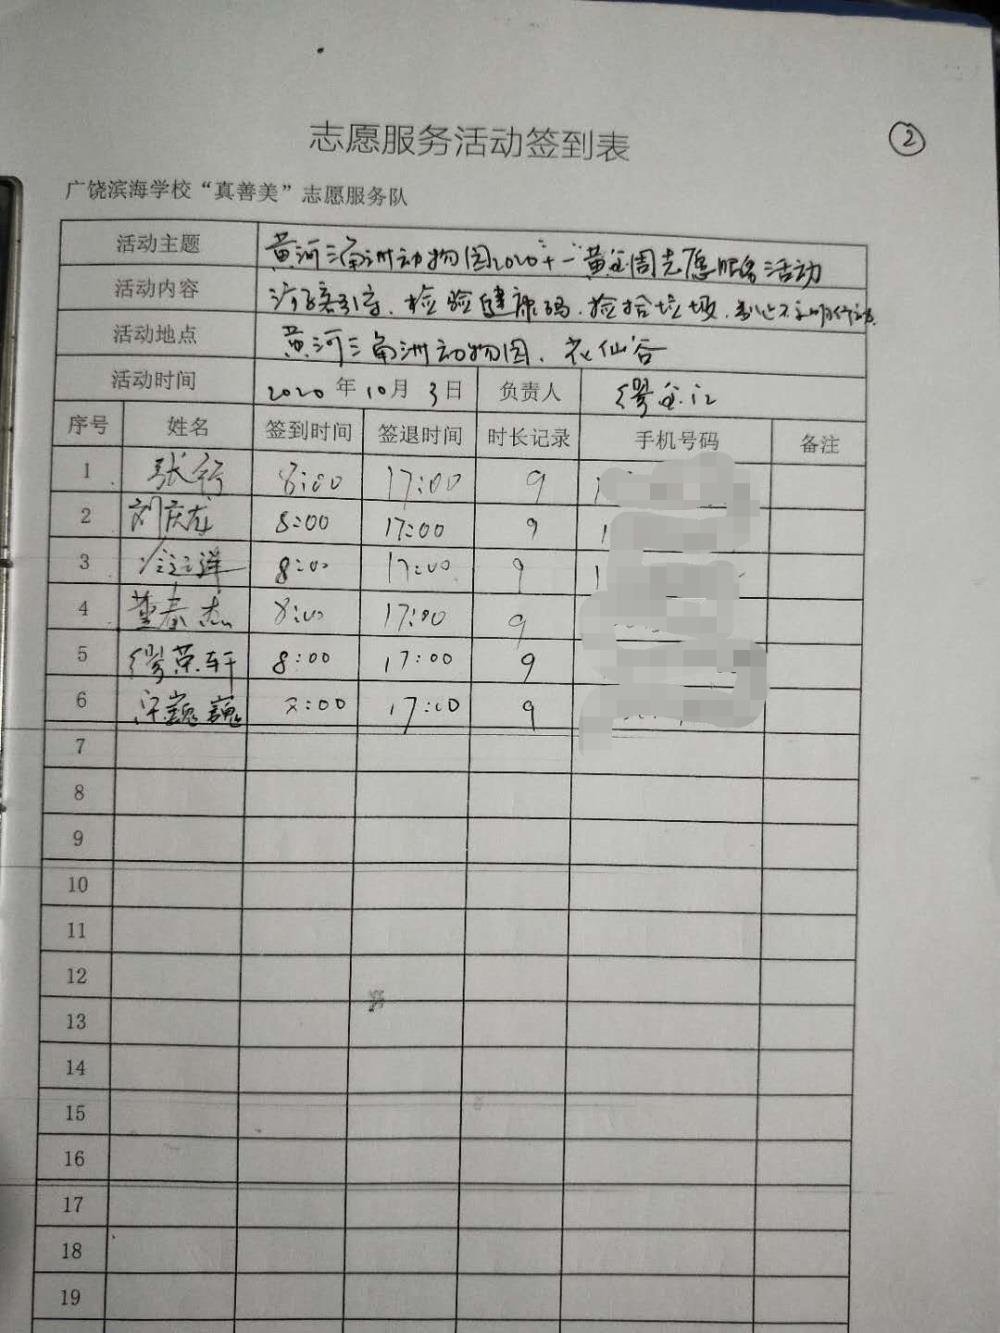 ②
志愿服务活动签到表
广饶滨海学校“真善美”志愿服务队
活动主题 黄河三角洲动物园2020十一黄金周志愿服务活动
活动内容 游客引导、检验健康码、捡拾垃圾、制止不文明行为
活动地点 黄河三角洲动物园、花仙谷
活动时间 2020年10月3日 负责人 缪金江
序号 姓名 签到时间 签退时间 时长记录 手机号码 备注
1 张行 8:00 17:00 9 1
2 刘庆龙 8:00 17:00 9 1
3 8:00 17:00 9 1
4 董春杰 8:00 17:00 9
5 缪荣轩 8:00 17:00 9
6 巍巍 8:00 17:00 9
7
8
9
10
11
12
13
14
15
16
17
18
19